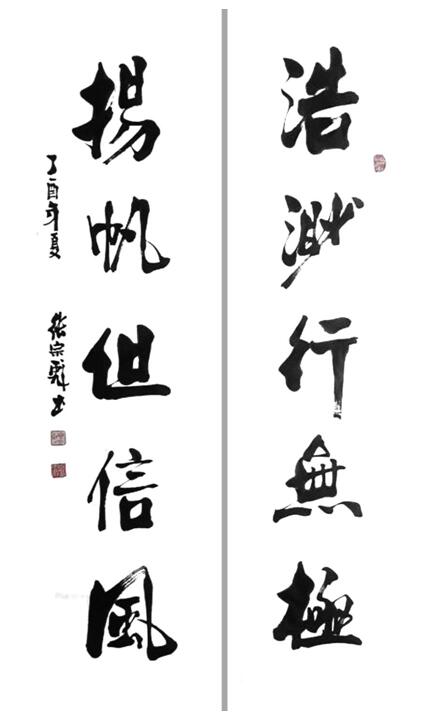 浩渺行無極
揚帆但信風
丁酉年夏 張宗书